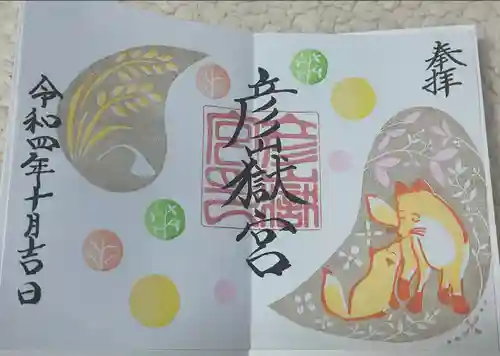 奉拝
彦嶽宮
令和四年十月吉日